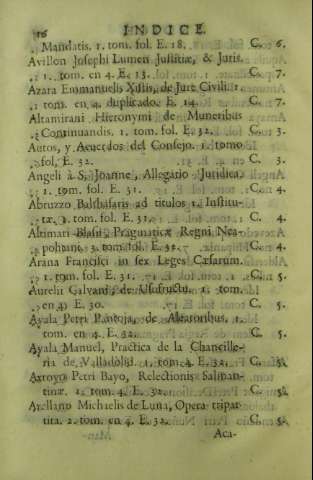 16 INDICE.
Mandatis. 1. tom. fol. E. 18. C. 6.
Avillon Josephi Lumen Justitiæ, & Juris.
1. tom. en 4. E. 13. C. 7.
Azara Emmanuelis Xistis, de Jure Civili. 1.
tom. en 4. duplicado. E. 14. C. 7.
Altamirani Hieronymi de Muneribus
Continuandis. 1. tom. fol. E. 32. C. 3.
Autos, y Acuerdos del Consejo. 1. tomo
fol. E. 32. C. 3.
Angeli à S. Joanne, Allegatio Juridica,
1. tom. fol. E. 31. C. 4.
Abruzzo Balthasaris ad titulos 1. Institu-
tæ, 1. tom. fol. E. 31. C. 4.
Altimari Blasii, Pragmaticæ Regni Nea-
politani, 3. tom. fol. E. 32. C. 4.
Arana Francisci in sex Leges Cæsarum.
1. tom. fol. E. 31. C. 5.
Aurelii Galvani, de Usufructu, 1. tom.
en 4. E. 30. C. 5.
Ayala Petri Pantoja, de Aleatoribus, 1.
tom. en 4. E. 32. C. 5.
Ayala Manuel, Practica de la Chancille-
ria de Valladolid. 1. tom. 4. E. 32. C. 5.
Arroyo Petri Bayo, Relectionis Salman-
tinæ. 1. tom. 4. E. 32. C. 5.
Arellano Michaelis de Luna, Opera tripar-
tita. 2. tom. en 4. E. 32. C. 5.
Aca-